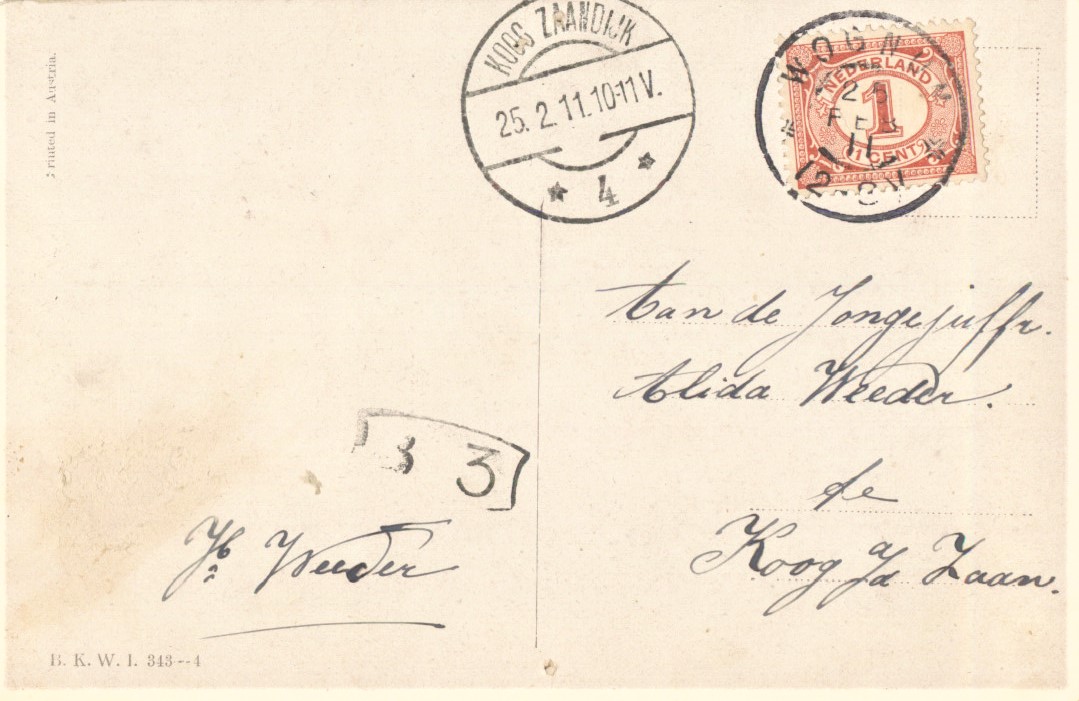 Printed in Austria.
KOOG ZAANDIJK
25. 2. 11. 10-11 V.
4
WOGNUM
25
FEB
11
12-8V
NEDERLAND
1
1 CENT
Aan de Jongejuffr.
Alida Weeder.
te
Koog a/d Zaan.
3 3
Jb Weeder
B. K. W. I. 343--4